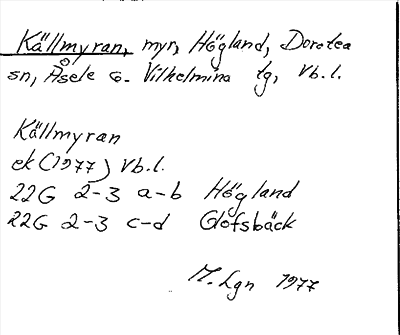 Källmyran, myr, Högland, Dorotea
sn, Åsele o. Vilhelmina tg, Vb.l.
Källmyran
ek (1977) Vb.l.
22G 2-3 a-b Högland
22G 2-3 c-d Glöfsbäck
M. Lgn 1977